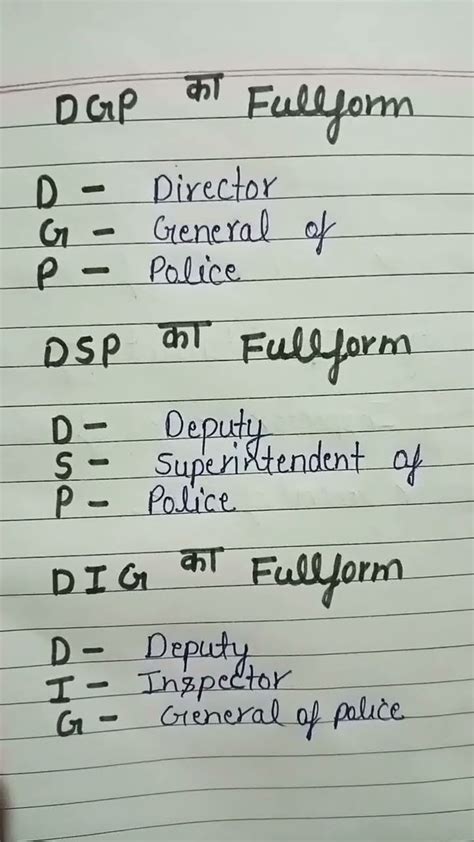 DGP का Fullform
D - Director
G - General of
P - Police
DSP का Fullform
D - Deputy
S - Superintendent of
P - Police
DIG का Fullform
D - Deputy
I - Inspector
G - General of police